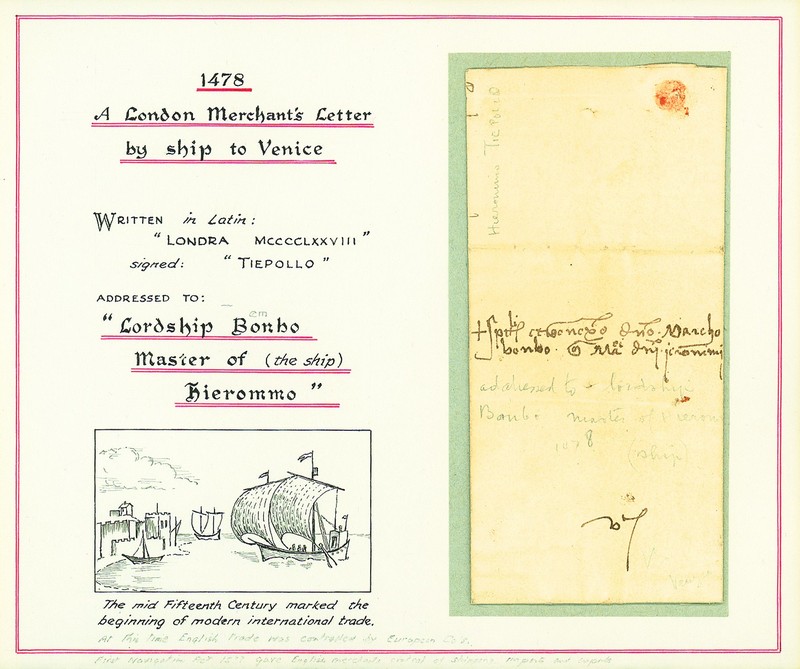 1478
A London Merchant's Letter
by ship to Venice
WRITTEN in Latin:
"LONDRA MCCCCLXXVIII"
signed: "TIEPOLLO"
ADDRESSED TO:
em
"Lordship Bonbo
Master of (the ship)
Hierommo"
The mid Fifteenth Century marked the
beginning of modern international trade.
At this time English trade was controlled by European Co's.
First Navigation Act gave English merchants control of shipping imports and exports
Hieronimo TIEPOLLO
dno. Marcho
bonbo.
addressed to lordship
Bonbo master of Hieron
(ship)